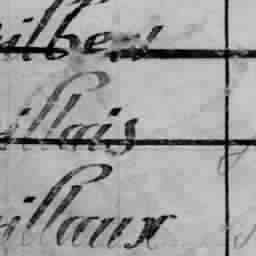 illbert
illais
illaux